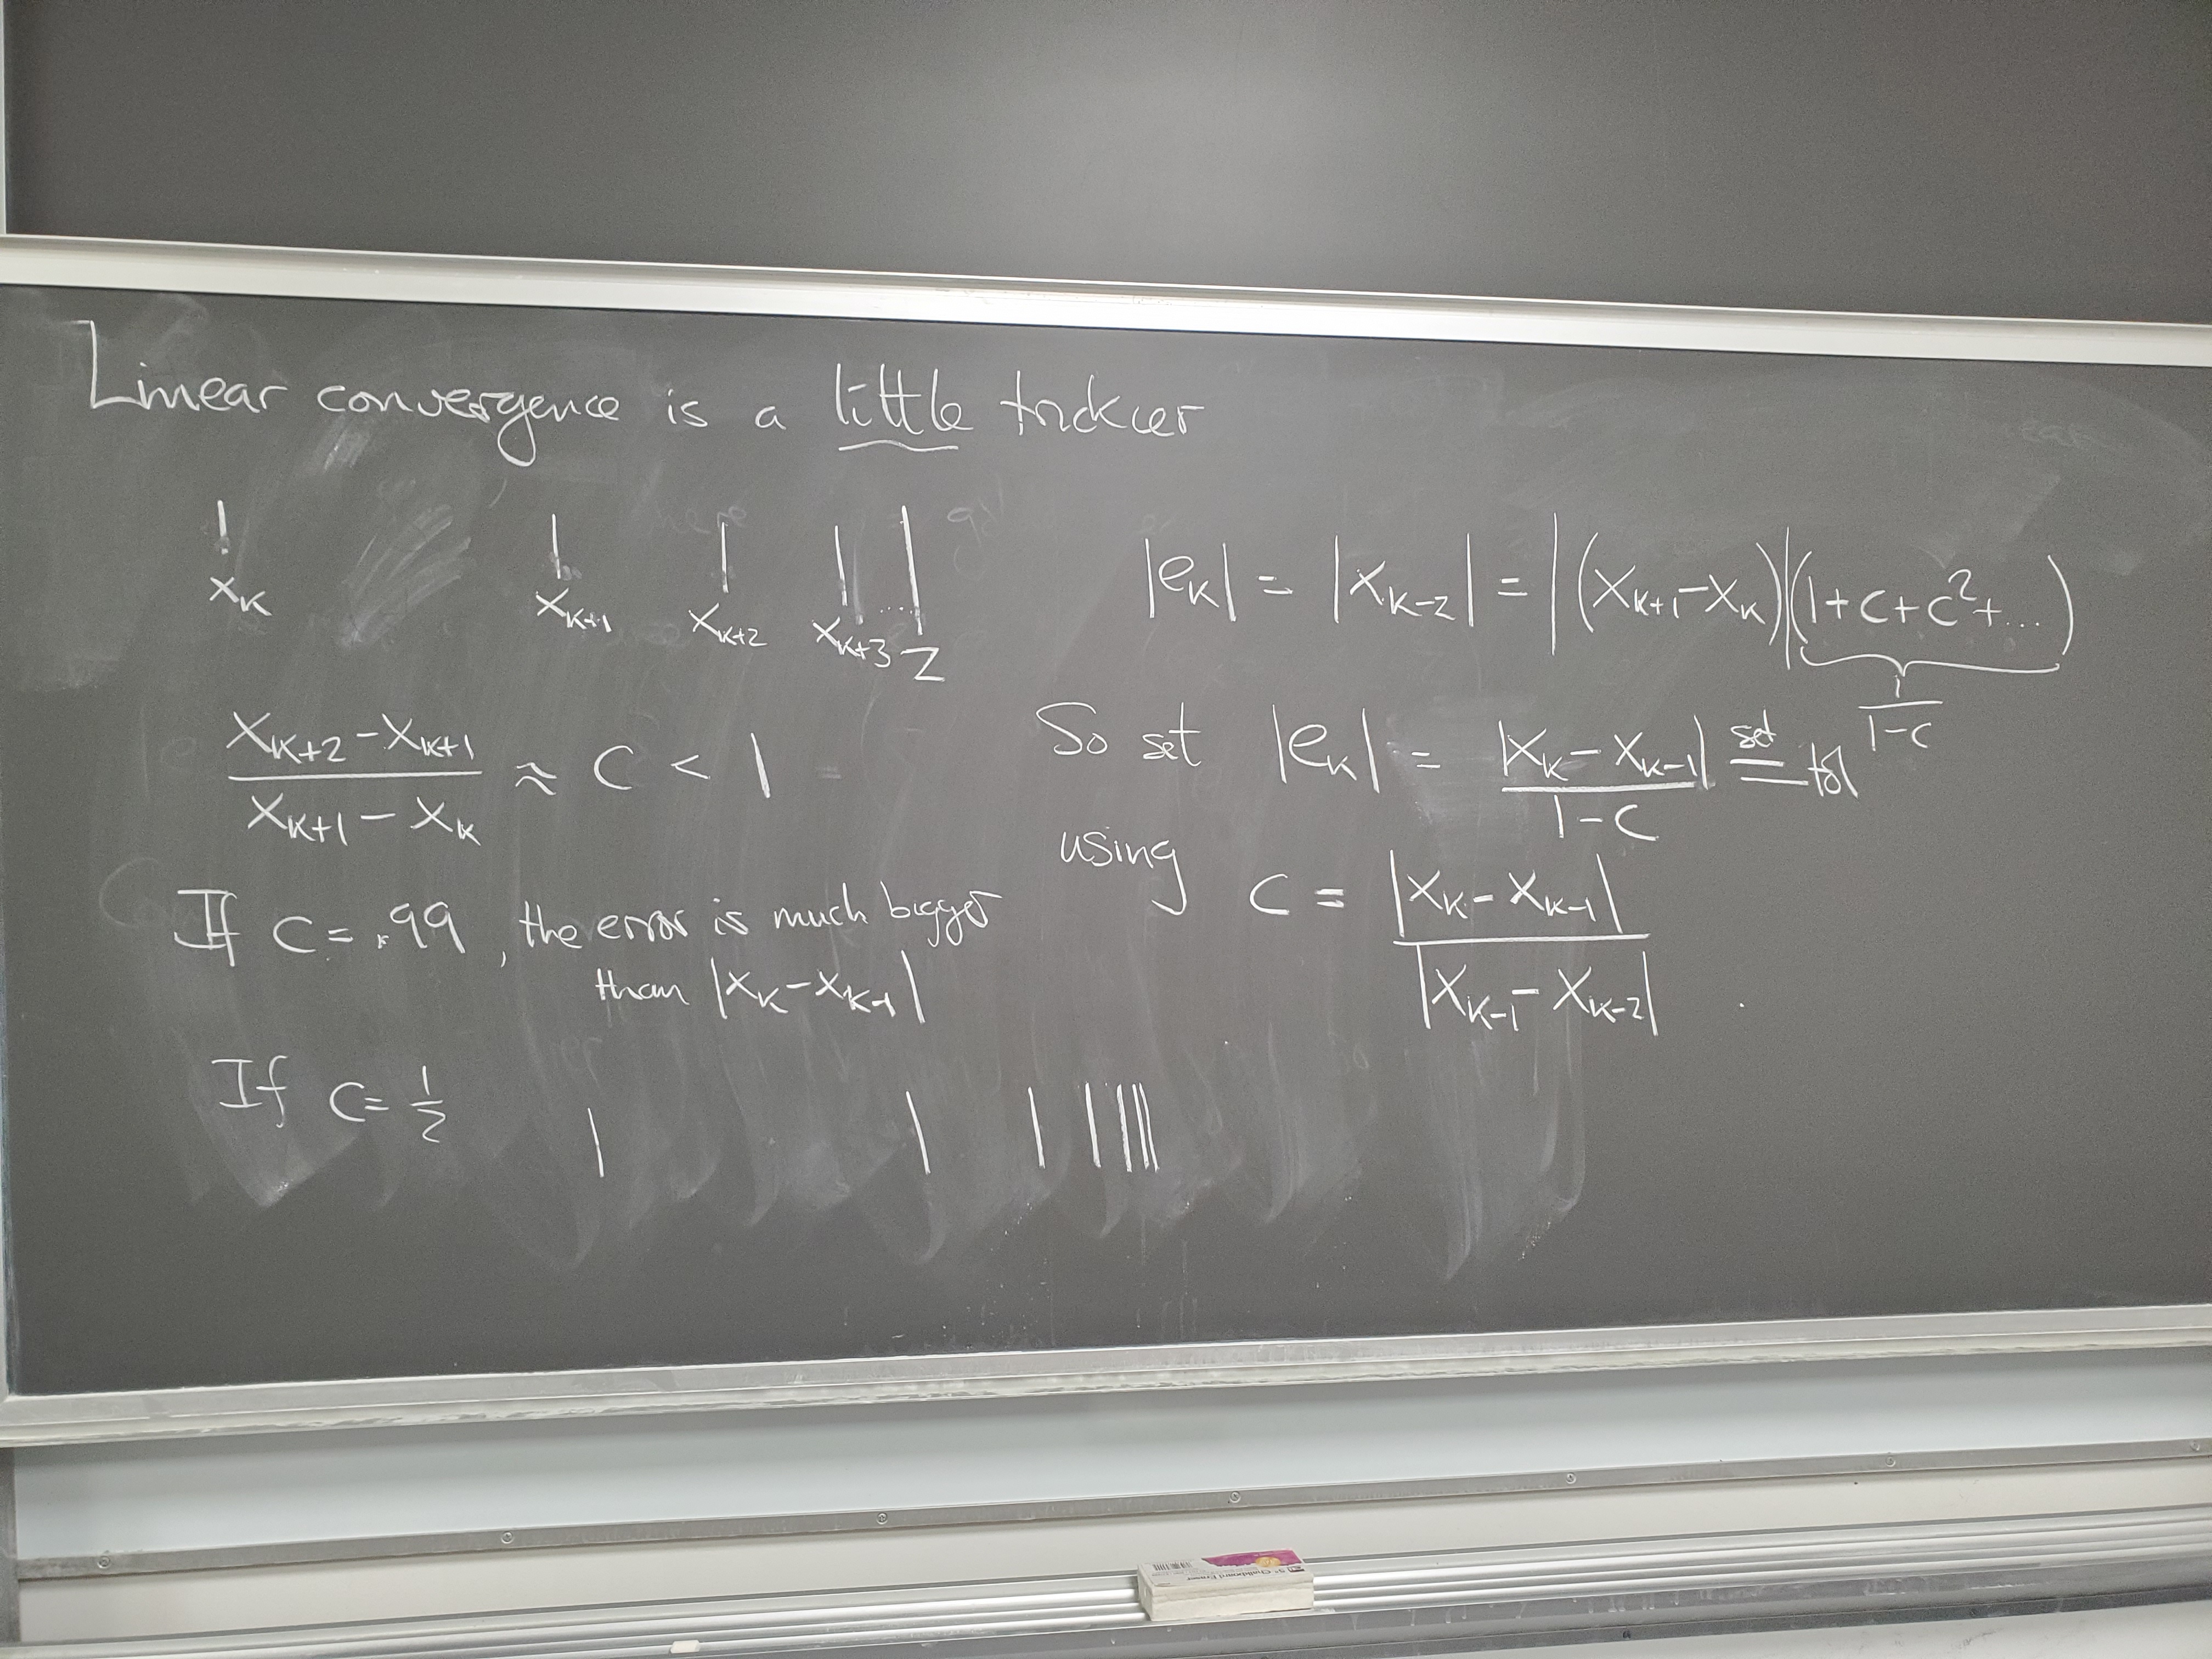 Linear convergence is a little trickier
x_k x_{k+1} x_{k+2} x_{k+3} .... z
\frac{x_{k+2} - x_{k+1}}{x_{k+1} - x_k} ≈ c < 1
If c = .99, the error is much bigger
than |x_k - x_{k-1}|
If c = \frac{1}{2}
|e_k| = |x_{k-z}| = |(x_{k+1} - x_k)|(1 + c + c^2 + ...)
\frac{1}{1-c}
So set |e_k| = \frac{|x_k - x_{k-1}|}{1-c} \stackrel{set}{=} tol
using c = \frac{|x_k - x_{k-1}|}{|x_{k-1} - x_{k-2}|}
5" Chalkboard Eraser